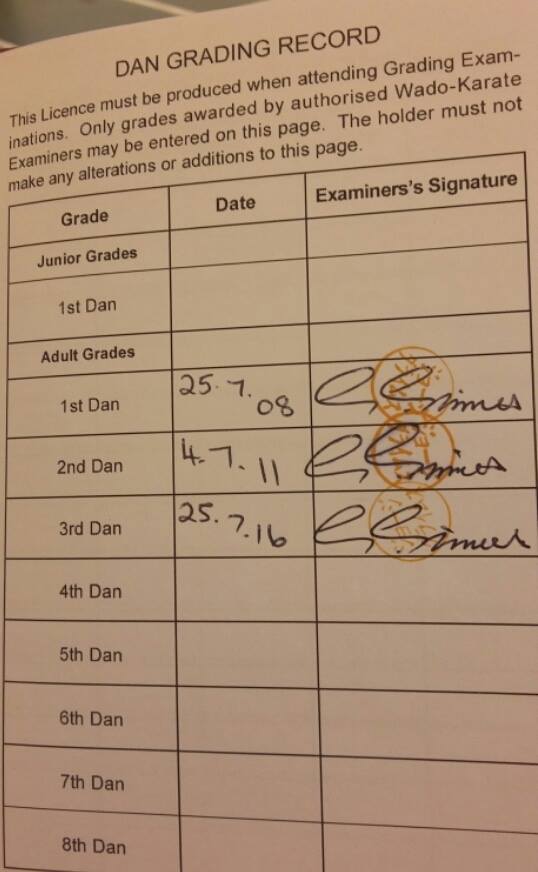 DAN GRADING RECORD
This Licence must be produced when attending Grading Exam-
inations. Only grades awarded by authorised Wado-Karate
Examiners may be entered on this page. The holder must not
make any alterations or additions to this page.
Grade Date Examiners's Signature
Junior Grades
1st Dan
Adult Grades
1st Dan 25.7.08
2nd Dan 4.7.11
3rd Dan 25.7.16
4th Dan
5th Dan
6th Dan
7th Dan
8th Dan